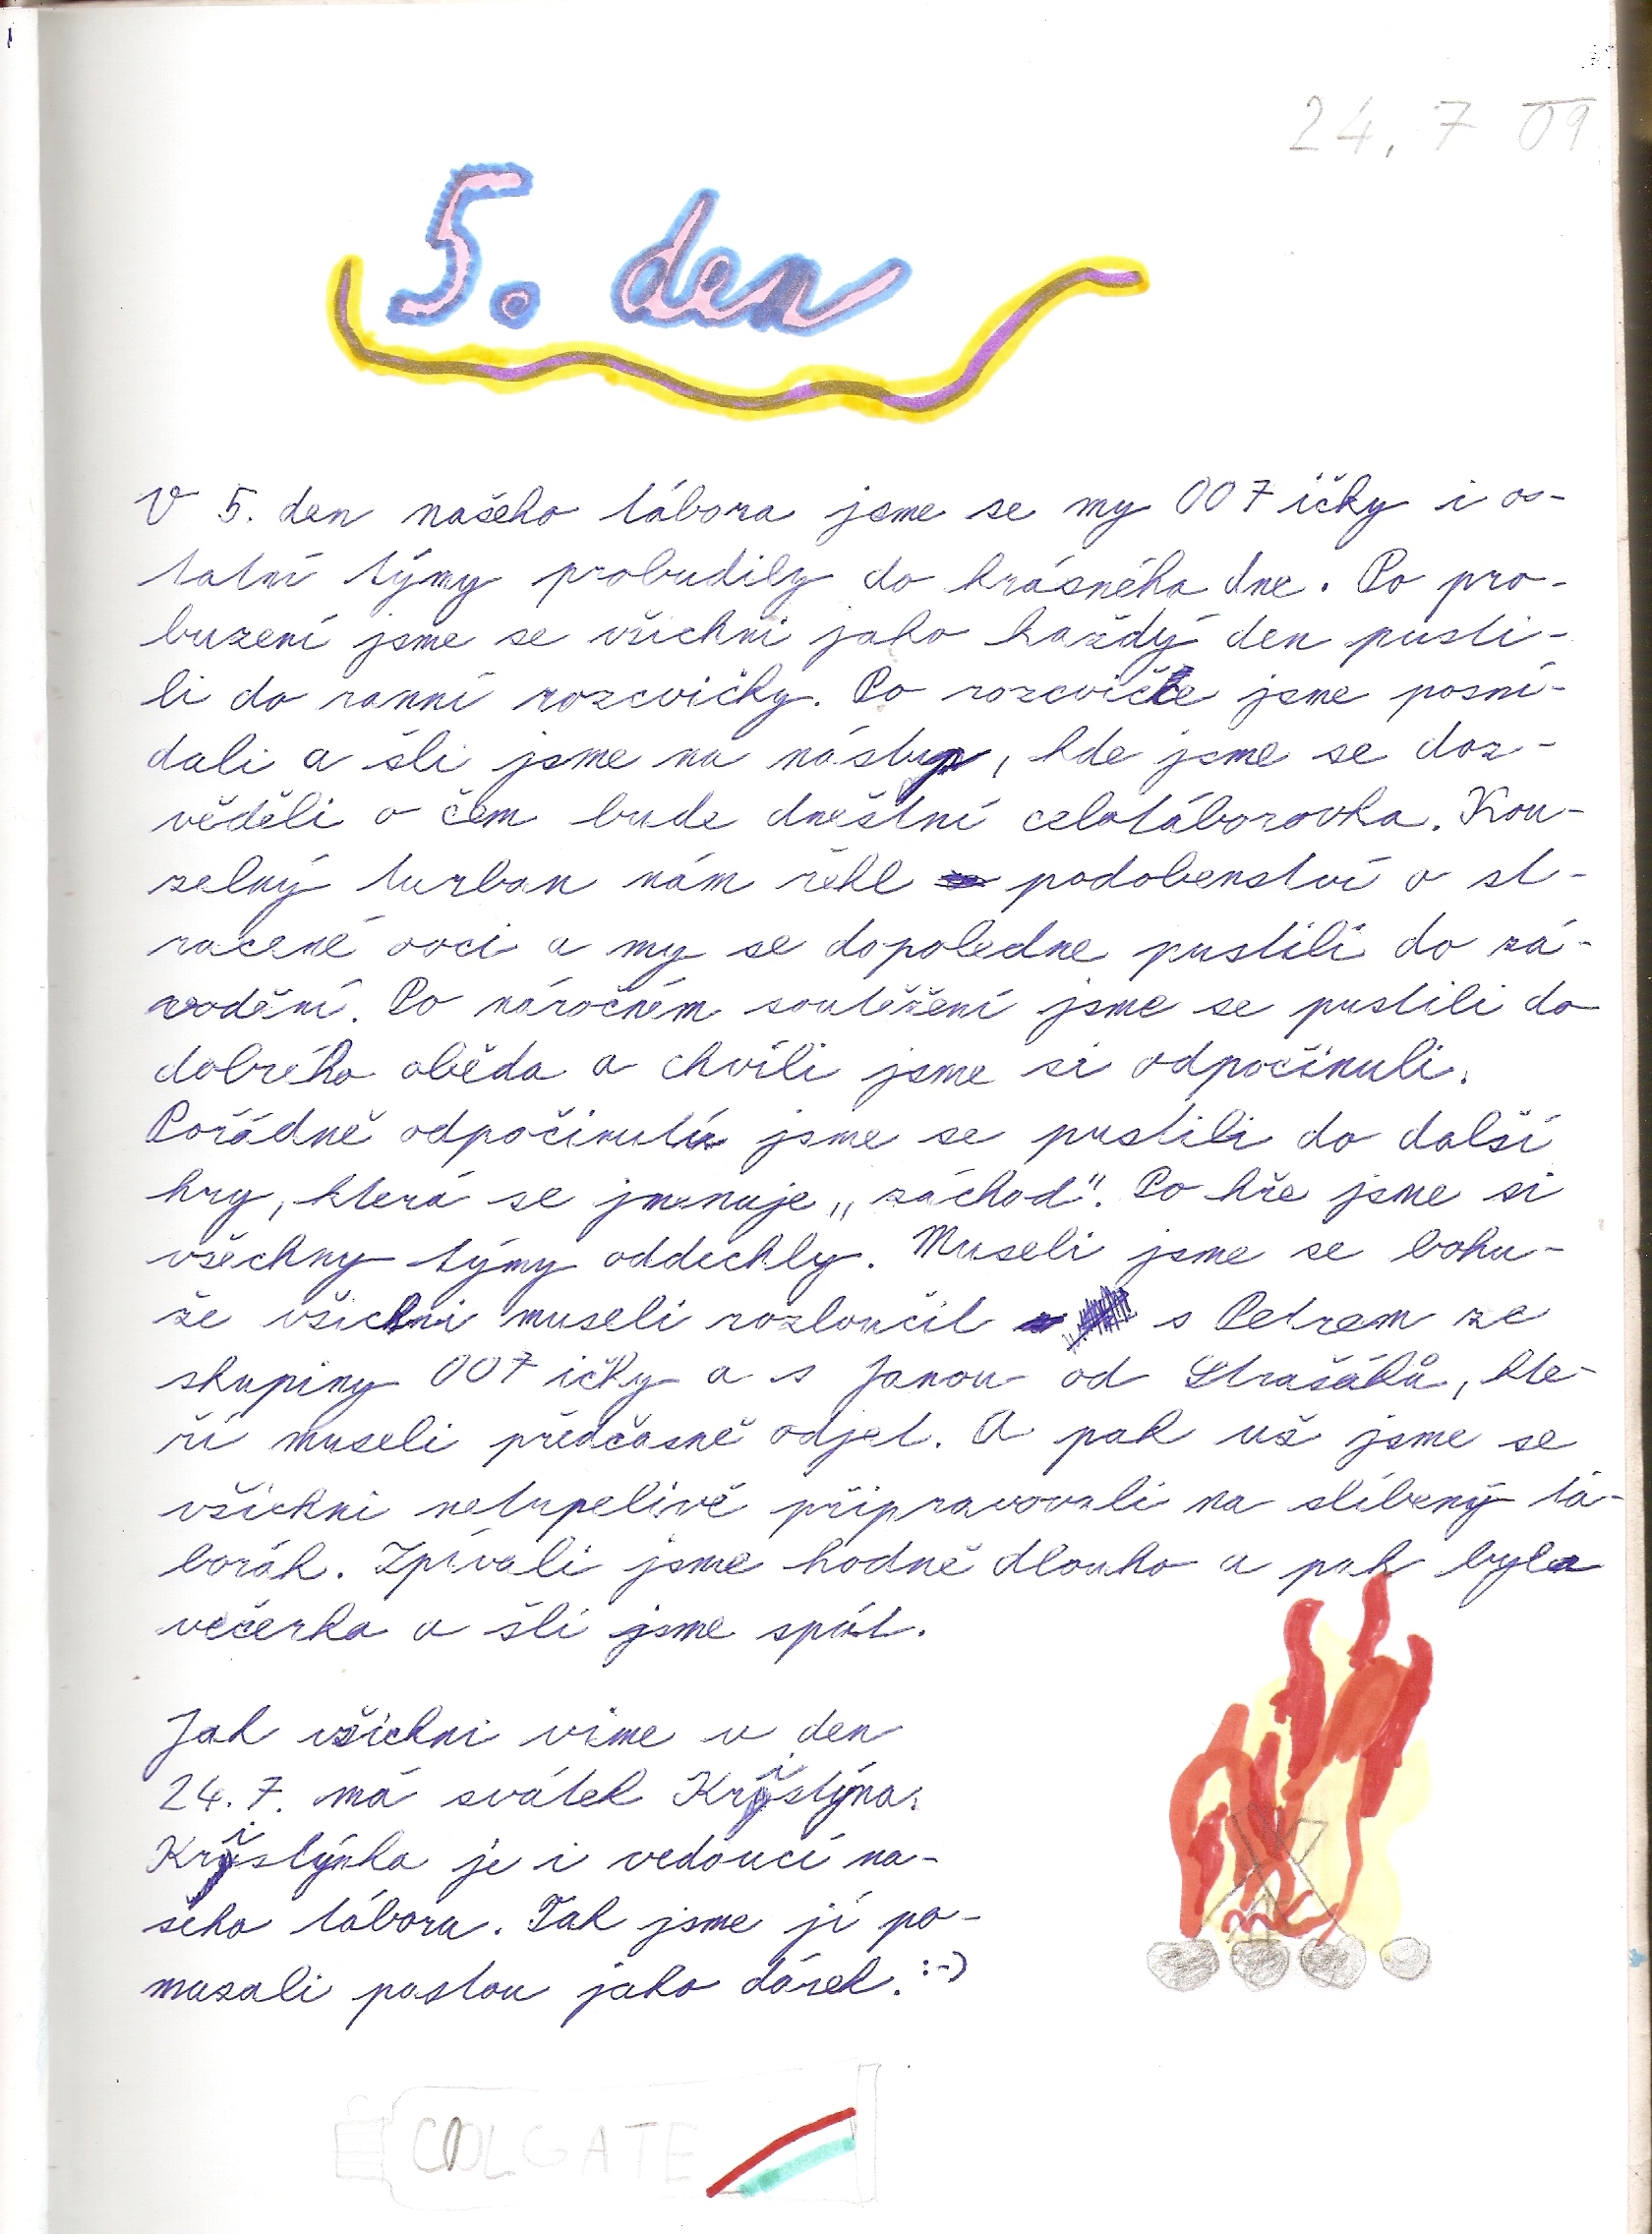 24. 7 09
5. den
V 5. den našeho tábora jsme se my 007 ičky i os-
tatní týmy probudily do krásného dne. Po pro-
buzení jsme se všichni jako každý den pusti-
li do ranní rozcvičky. Po rozcvičce jsme posní-
dali a šli jsme na nástup, kde jsme se doz-
věděli o čem bude dneštní celotáborovka. Kou-
zelný turban nám řekl podobenství o st-
racené ovci a my se dopoledne pustili do zá-
vodění. Po náročném soutěžení jsme se pustili do
dobrého oběda a chvíli jsme si odpočinuli.
Pořádně odpočinutí jsme se pustili do další
hry, která se jmenuje „záchod". Po hře jsme si
všechny týmy oddechly. Museli jsme se bohu-
že všichni museli rozloučit s Petrem ze
skupiny 007 ičky a s Janou od Strašáků, kte-
ří museli předčasně odjet. A pak už jsme se
všichni netrpelivě připravovali na slíbený tá-
borák. Zpívali jsme hodně dlouho a pak byla
večerka a šli jsme spát.
Jak všichni víme v den
24. 7. má svátek Kristýna.
Kristýnka je i vedoucí na-
šeho tábora. Tak jsme jí po-
mazali pastou jako dárek. :-)
COLGATE